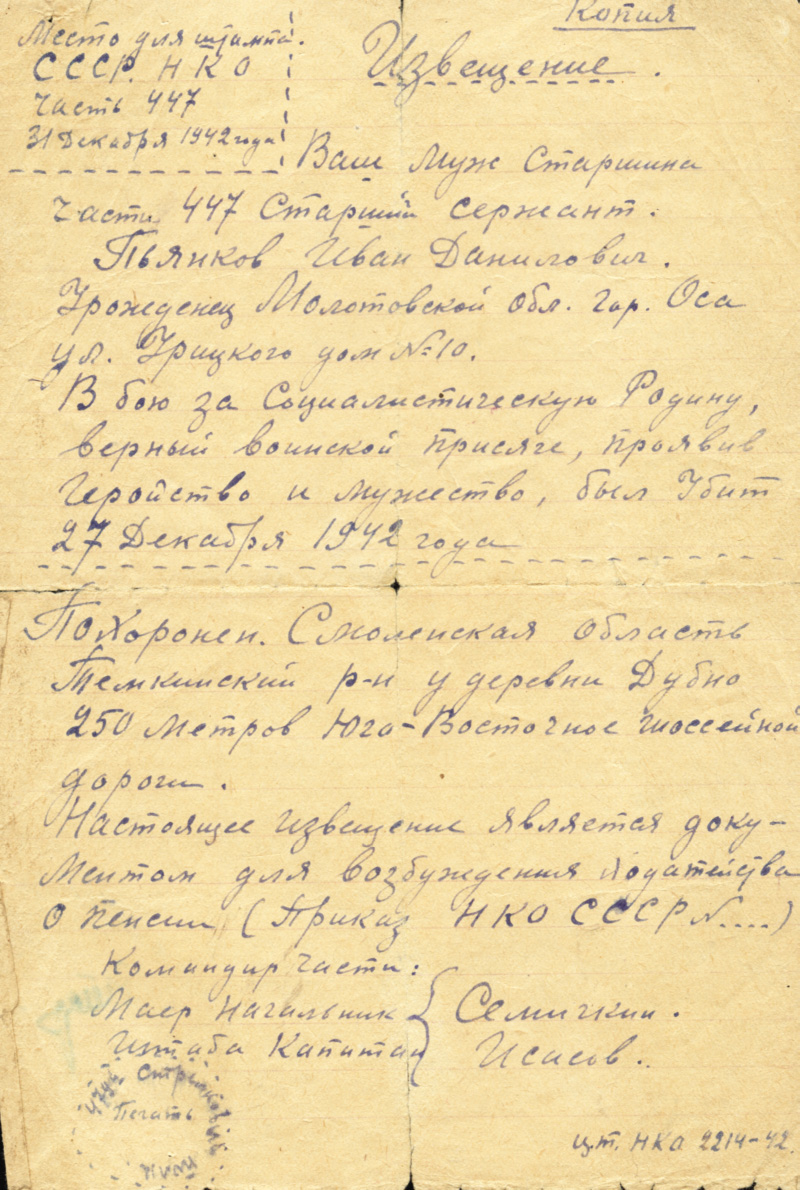 Копия
Место для штампа.
СССР. НКО
Часть 447
31 Декабря 1942 года
Извещение.
Ваш муж Старшина
части 447 Старший сержант.
Пьянков Иван Данилович.
Урожденец Молотовской обл. гор. Оса
ул. Урицкого дом №10.
В бою за Социалистическую Родину,
верный воинской присяге, проявив
геройство и мужество, был Убит
27 Декабря 1942 года
Похоронен. Смоленская область
Темкинский р-н у деревни Дубно
250 метров Юго-Восточное шоссейной
дороги.
Настоящее извещение является доку-
ментом для возбуждения ходатейства
о пенсии (Приказ НКО СССР №....)
Командир части:
Маер Начальник { Семичкин.
Штаба Капитан Исасов..
Печать
ц.т. НКО 2214-42.